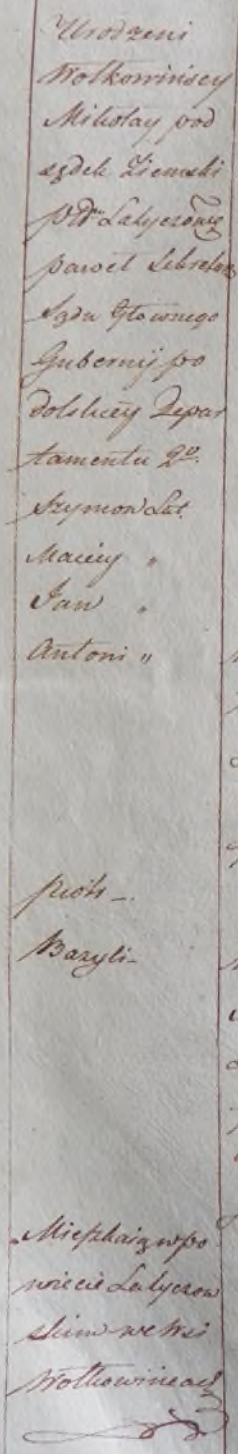 Urodzeni
Wołkowińscy
Mikołay pod
sędek Ziemski
Pttu Latyczow
paweł Sekretarz
Sądu Głownego
Gubernij po
dolskiey Depar
tamentu 2º
Szymon Lat.
Maciey "
Jan "
Antoni "
piotr -
Bazyli -
Mieszkaią w po
wiecie Latyczow
skim we wsi
Wołkowincach